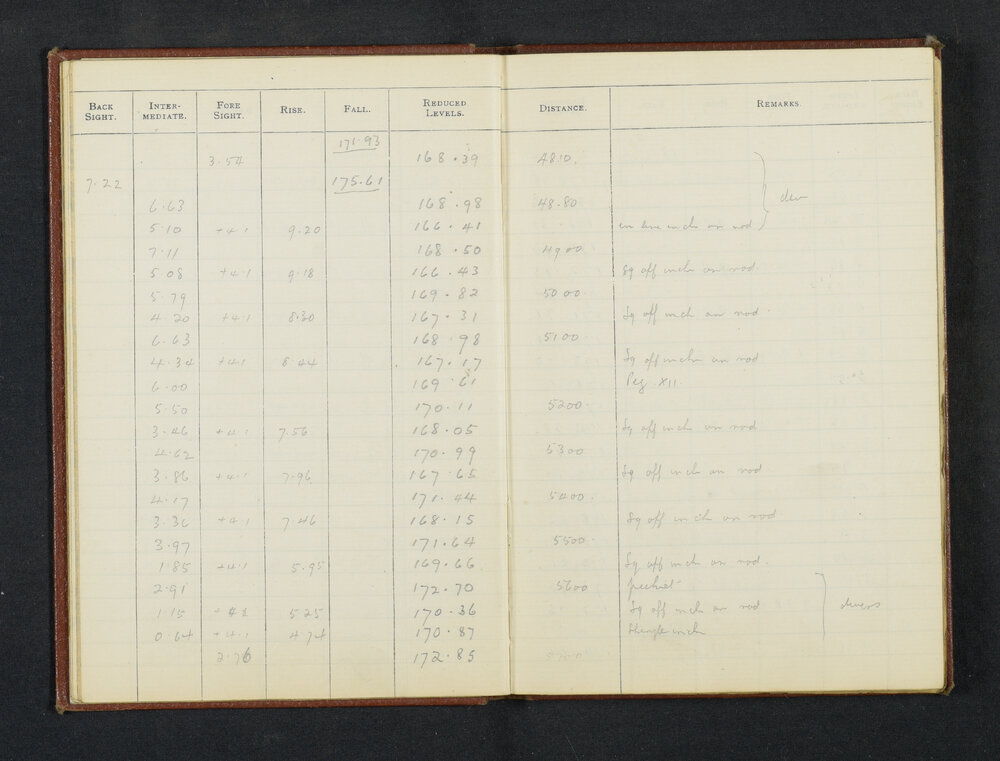 BACK SIGHT. INTER-MEDIATE. FORE SIGHT. RISE. FALL. REDUCED LEVELS. DISTANCE. REMARKS.
171.93
3.54 168.39 4810.
7.22 175.61
6.63 168.98 48.80
5.10 +4.1 9.20 166.41 on rod
7.11 168.50 4900
5.08 +4.1 9.18 166.43 Sq off inch on rod
5.79 169.82 5000
4.20 +4.1 8.30 167.31 Sq off inch on rod
6.63 168.98 5100
4.34 +4.1 8.44 167.17 Sq off inch on rod
6.00 169.61 Peg XII.
5.50 170.11 5200
3.46 +4.1 7.56 168.05 Sq off inch on rod
4.62 170.99 5300
3.86 +4.1 7.96 167.65 Sq off inch on rod
4.17 171.44 5400
3.36 +4.1 7.46 168.15 Sq off inch on rod
3.97 171.64 5500
1.85 +4.1 5.95 169.66 Sq off inch on rod
2.91 172.70 5600
1.15 +4.1 5.25 170.36 Sq off inch on rod
0.64 +4.1 4.74 170.87 inch
2.76 172.85